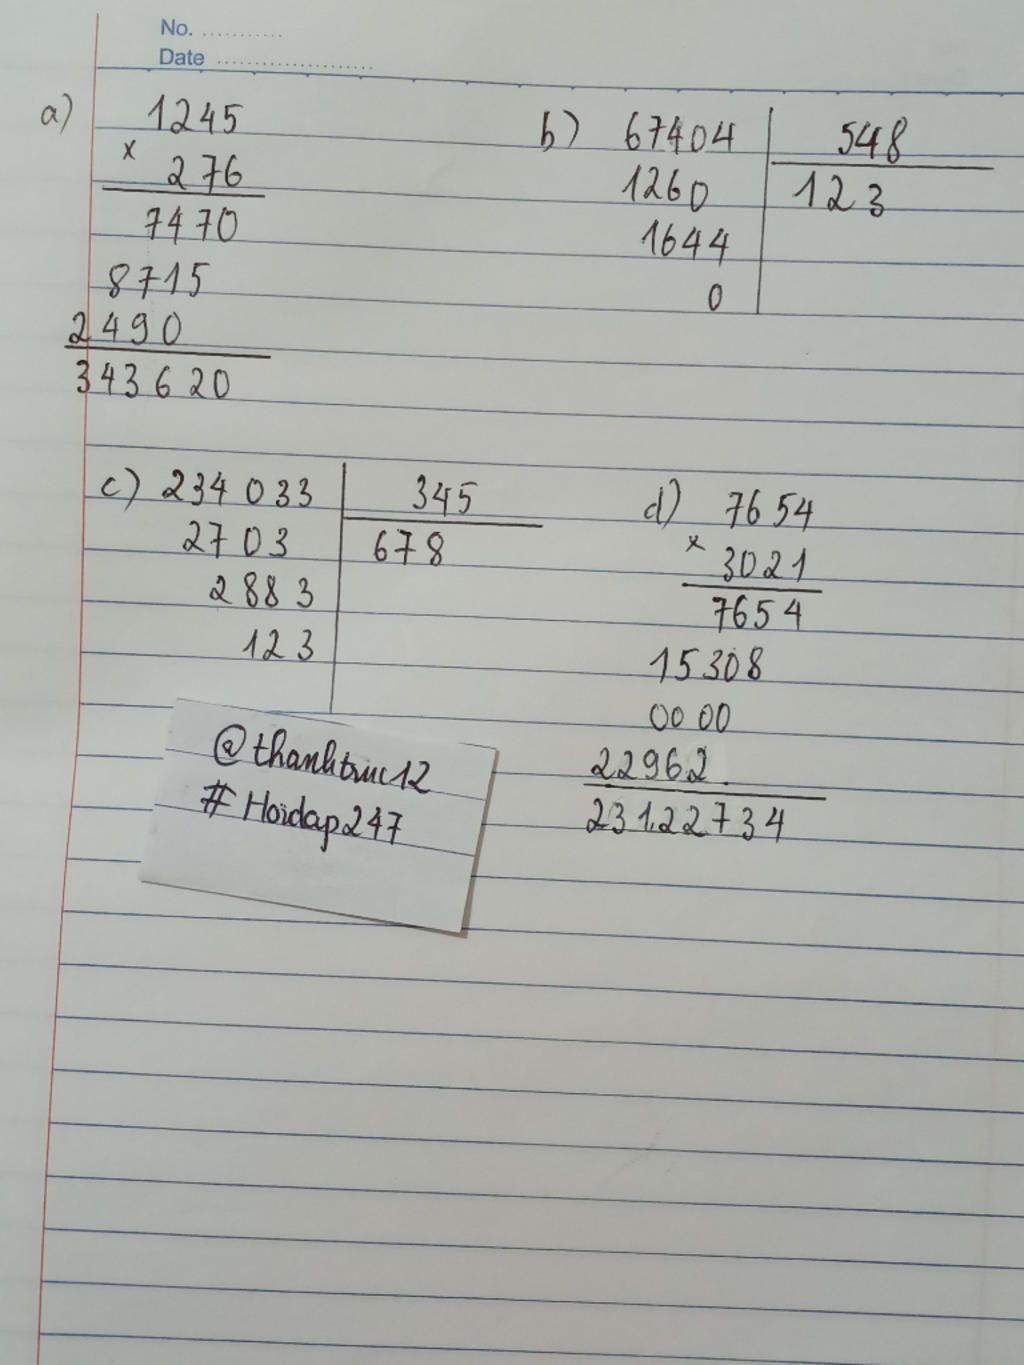 No. ...........
Date .....................
a)
1245
x
276
7470
8715
2490
343620
b) 67404 548
1260 123
1644
0
c) 234033 345
2703 678
2883
123
d) 7654
x
3021
7654
15308
0000
22962.
23122734
@thanhtruc12
#Hoidap247